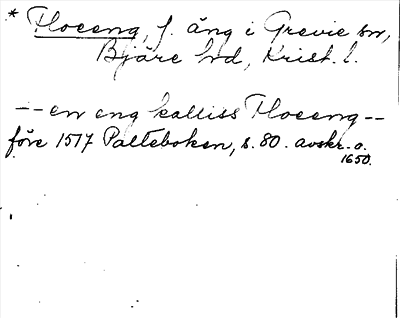 * Floeeng, f. äng i Grevie sn,
Bjäre hd, Krist. l.
-- en eng kalliss Floeeng --
före 1517 Palteboken, s. 80. avskr. o.
1650.